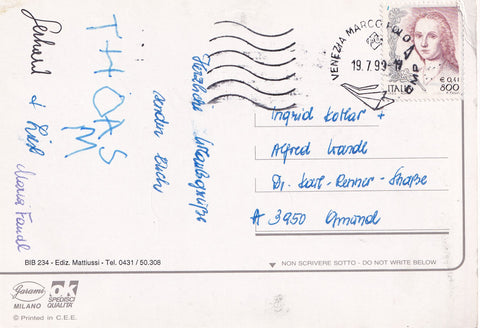 Herzliche Urlaubsgrüße
senden Euch
THOAS
M
Gerhard + 
Maria
VENEZIA MARCO POLO
CMP
19.7.99-17
€ 0,41
800
ITALIA
Ingrid Kollar +
Alfred
Dr. Karl-Renner-Straße
A 3950 Gmünd
BIB 234 - Ediz. Mattiussi - Tel. 0431 / 50.308
NON SCRIVERE SOTTO - DO NOT WRITE BELOW
Garami
MILANO
OK
SPEDISCI
QUALITA'
© Printed in C.E.E.